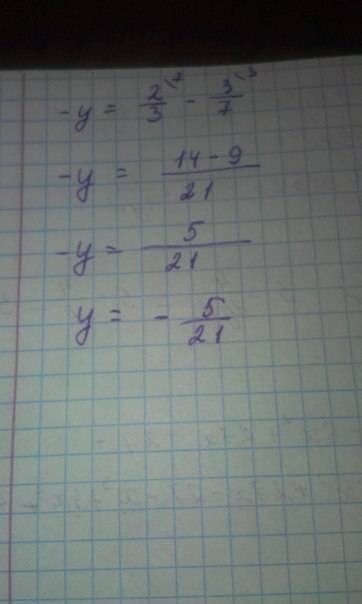 -y = 2/3 \7 - 3/7 \3
-y = 14 - 9 / 21
-y = 5 / 21
y = - 5/21